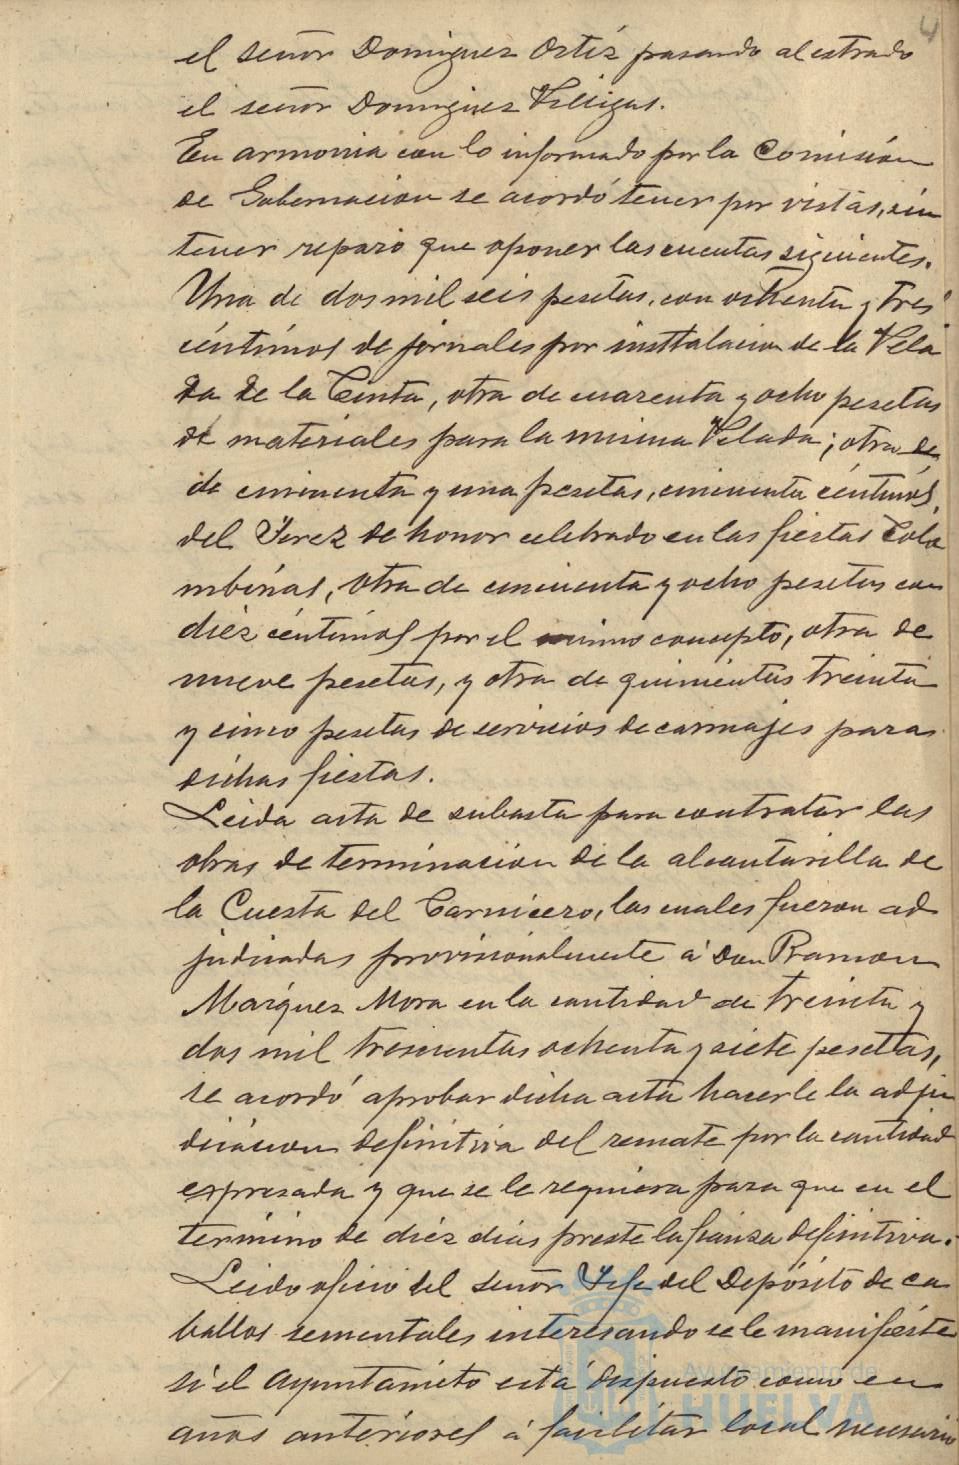 4
el señor Dominguez Ortíz pasando al estrado
el señor Dominguez Villegas.
En armonia con lo informado por la Comisión
de Gobernacion se acordó tener por vistas, sin
tener reparo que oponer las cuentas siguientes.
Una de dos mil seis pesetas, con ochenta y tres
céntimos de jornales por insttalacion de la Vela
da de la Cinta, otra de cuarenta y ocho pesetas
de materiales para la misma Velada; otra de
de cincuenta y una pesetas, cincuenta céntimos,
del Jerez de honor celebrado en las fiestas Colo
mbinas, otra de cincuenta y ocho pesetas con
diez céntimos por el mismo concepto, otra de
nueve pesetas, y otra de quinientas treinta
y cinco pesetas de servicios de carruajes para
dichas fiestas.
Leida acta de subasta para contratar las
obras de terminacion de la alcantarilla de
la Cuesta del Carnicero, las cuales fueron ad
judicadas provisionalmente á Don Ramon
Marquez Mora en la cantidad de treinta y
dos mil trescientas ochenta y siete pesettas,
se acordó aprobar dicha acta hacerle la adju
dicacion definitiva del remate por la cantidad
expresada y que se le requiera para que en el
termino de diéz dias preste la fianza definitiva.
Leido oficio del señor Jefe del Depósito de ca
ballos sementales interesando se le manifiéste
si el Ayuntamieto está dispuesto como en
años anteriores á facilitar local necesario
Ayuntamiento de
HUELVA